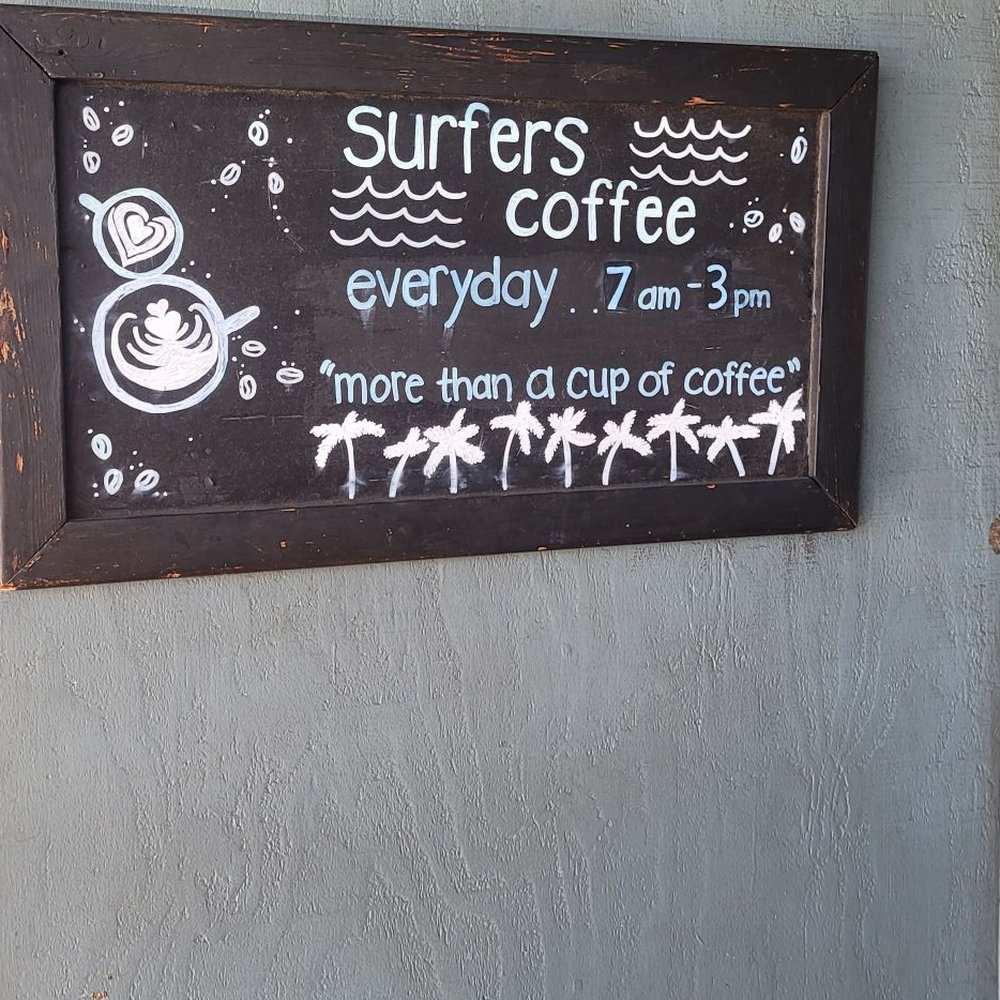 surfers
coffee
everyday . . 7am - 3pm
"more than a cup of coffee"